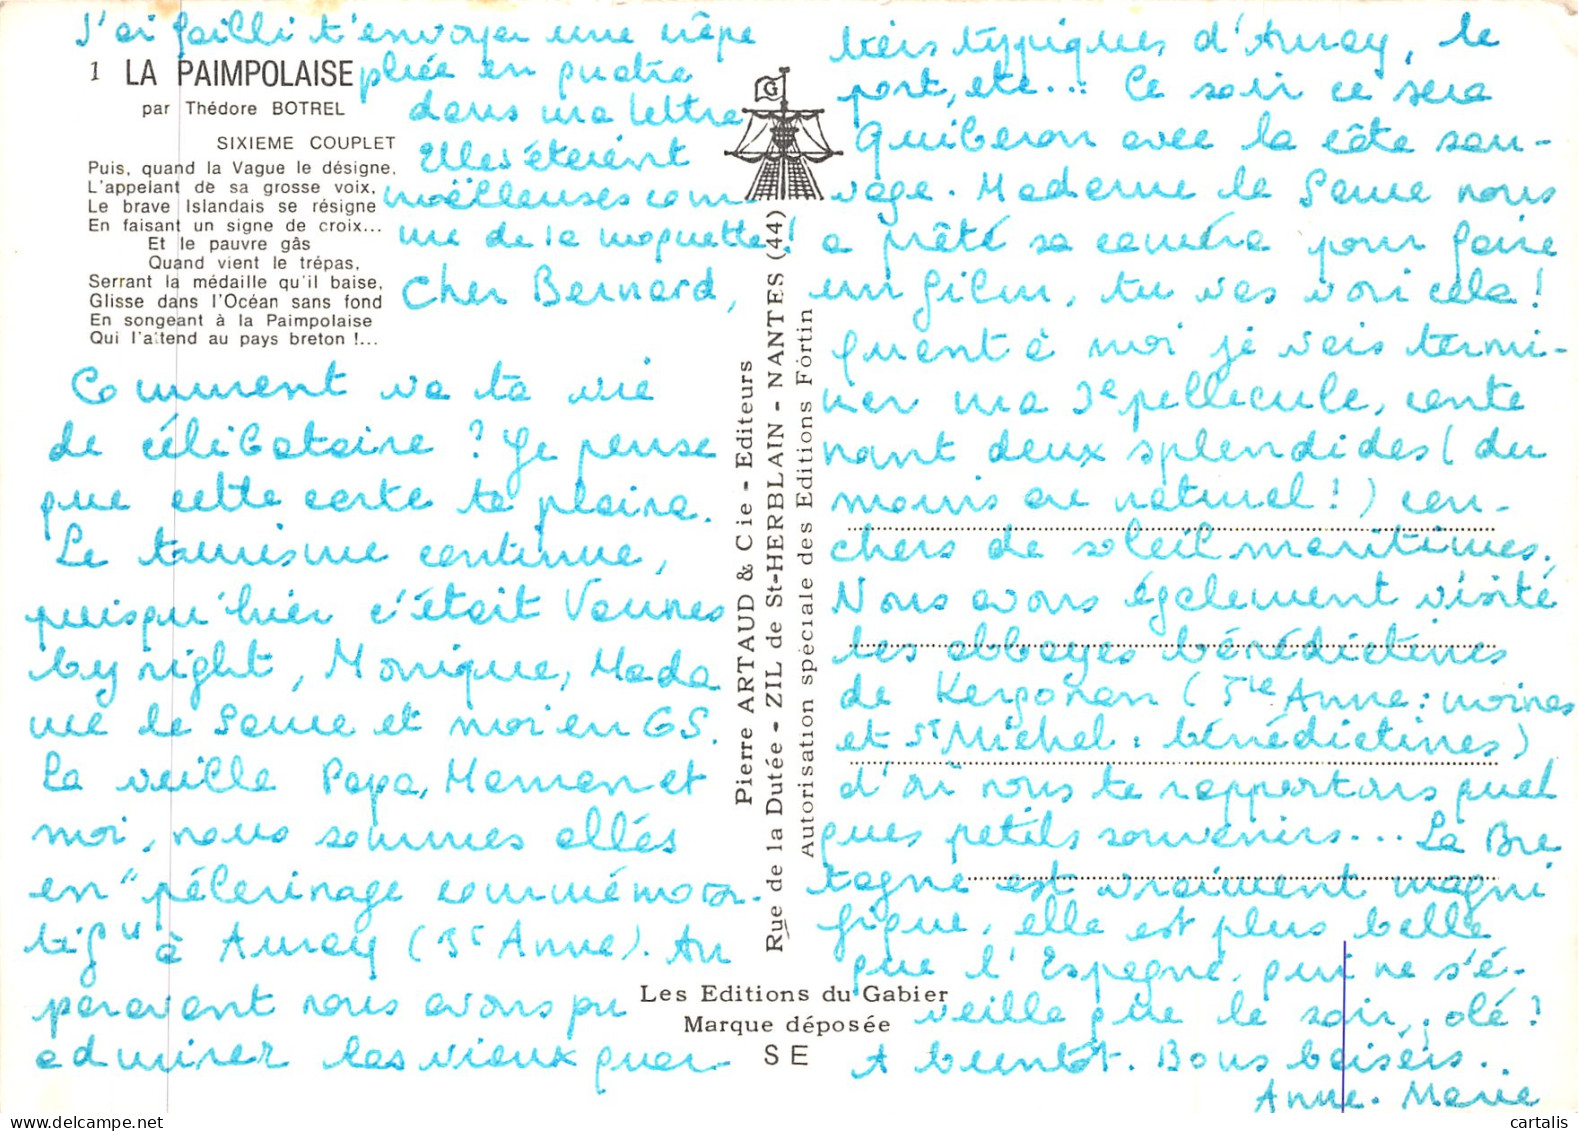 J'ai failli t'envoyer une crêpe
pliée en quatre
dans ma lettre
Elles étaient
moëlleuses com
me de la moquette!
1 LA PAIMPOLAISE
par Thédore BOTREL
SIXIEME COUPLET
Puis, quand la Vague le désigne,
L'appelant de sa grosse voix,
Le brave Islandais se résigne
En faisant un signe de croix...
Et le pauvre gâs
Quand vient le trépas,
Serrant la médaille qu'il baise,
Glisse dans l'Océan sans fond
En songeant à la Paimpolaise
Qui l'attend au pays breton !...
Cher Bernard,
Comment va ta vie
de célibataire ? Je pense
que cette carte te plaira.
Le tourisme continue,
puisqu'hier c'était Vannes
by night, Monique, Mada
me le Saure et moi en GS.
La veille Papa, Maman et
moi, nous sommes allés
en "pélerinage commémora-
tif" à Auray (Ste Anne). Au
paravant nous avons pu
admirer les vieux quar-
G
Pierre ARTAUD & Cie - Editeurs
Rue de la Dutée - ZIL de St-HERBLAIN - NANTES (44)
Autorisation spéciale des Editions Fortin
Les Editions du Gabier
Marque déposée
S E
tiers typiques d'Auray, le
port, etc... Ce soir ce sera
Quiberon avec la côte sau-
vage. Madame le Saure nous
a prêté sa caméra pour faire
un film, tu vas voir cela!
Quant à moi je vais termi-
ner ma 3e pellicule, conte
nant deux splendides (du
moins au naturel!) cou-
chers de soleil maritimes.
Nous avons également visité
les abbayes bénédictines
de Kergonan (Ste Anne: moines
et St Michel: bénédictines)
d'où nous te rapportons quel
ques petits souvenirs... La Bre
tagne est vraiment magni
fique, elle est plus belle
que l'Espagne, qui ne s'é-
veille que le soir, olé!
A bientôt. Bons baisers..
Anne-Marie
cartalis